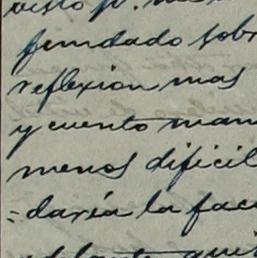 visto p.
fundado sobr
reflexion mas
y cuento man
menos dificil
=daría la fac